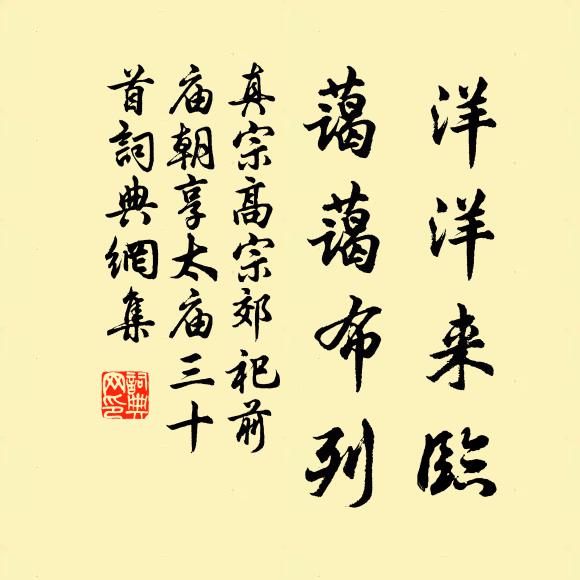 洋洋来臨
藹藹布列
真宗高宗郊祀前
庙朝享太庙三十
首詞典網集
詞典
网印